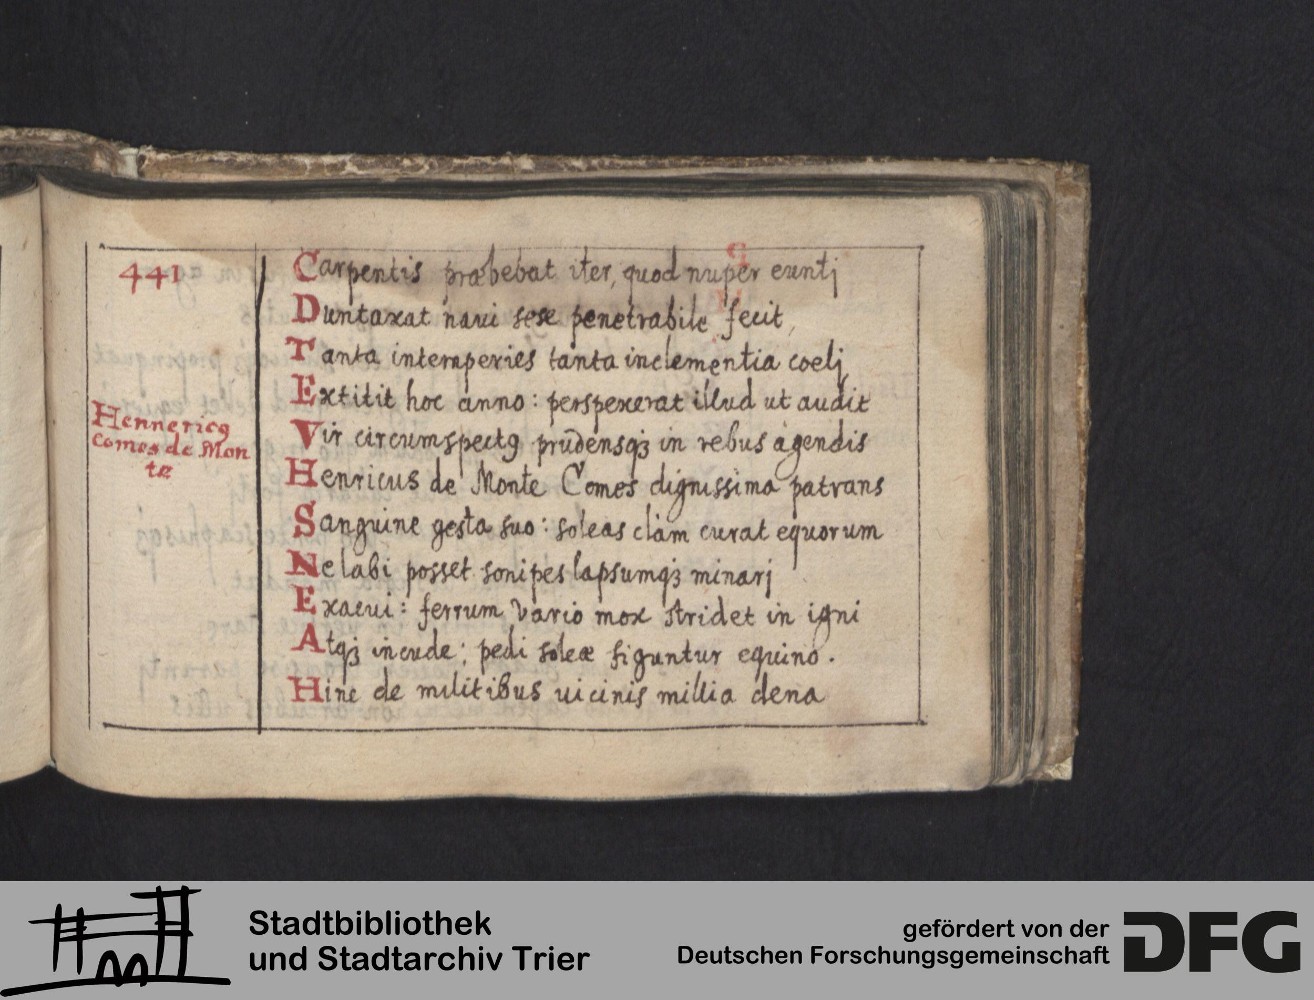 441
Carpentis præbebat iter, quod nuper euntj
Duntaxat naui sese penetrabile fecit,
Tanta intemperies tanta inclementia coelj
Extitit hoc anno: perspexerat illud ut audit
Hennericꝯ
Comes de Mon
te
Vir circumspectꝯ prudensqꝫ in rebus agendis
Henricus de Monte Comes dignissima patrans
Sanguine gesta suo: soleas clam curat equorum
Ne labi posset sonipes lapsumqꝫ minarj
Exacui: ferrum vario mox stridet in igni
Atqꝫ incude; pedi soleæ figuntur equino.
Hinc de militibus uicinis millia dena
Stadtbibliothek
und Stadtarchiv Trier
gefördert von der
Deutschen Forschungsgemeinschaft
DFG